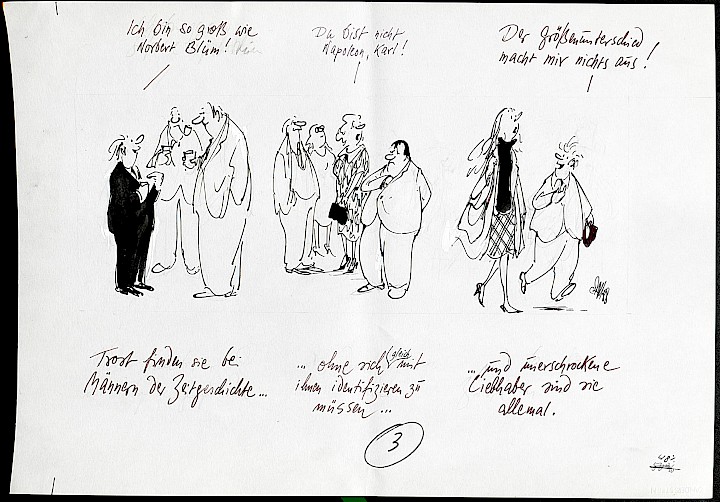 Ich bin so groß wie
Norbert Blüm!
Du bist nicht
Napoleon, Karl!
Der Größenunterschied
macht mir nichts aus!
Trost finden sie bei
Männern der Zeitgeschichte...
... ohne sich gleich mit
ihnen identifizieren zu
müssen...
... und unerschrockene
Liebhaber sind sie
allemal.
3